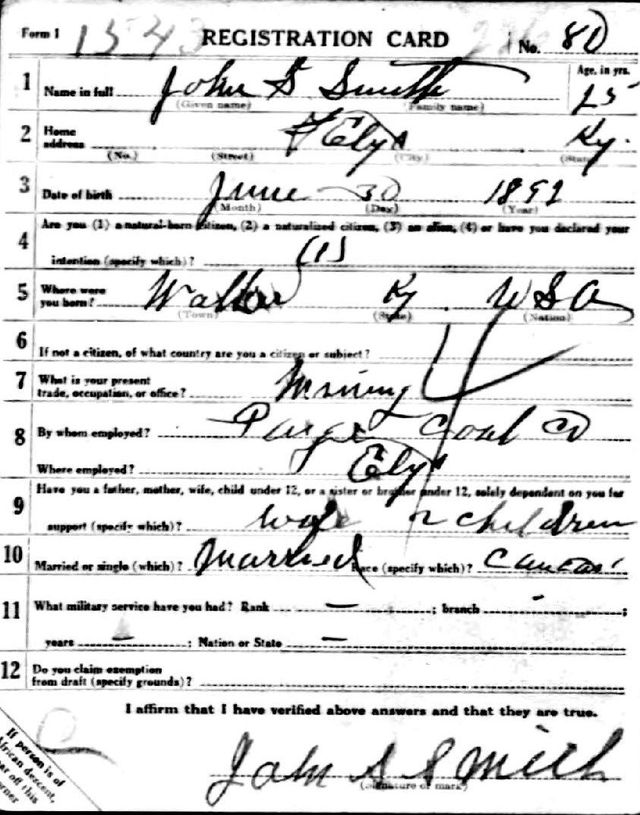 Form 1 1543 REGISTRATION CARD No. 80
1 Name in full John S Smith Age, in yrs. 25
(Given name) (Family name)
2 Home address Ely Ky.
(No.) (Street) (City) (State)
3 Date of birth June 30 1892
(Month) (Day) (Year)
4 Are you (1) a natural-born citizen, (2) a naturalized citizen, (3) an alien, (4) or have you declared your
intention (specify which)? (1)
5 Where were you born? Walker Ky. USA
(Town) (State) (Nation)
6 If not a citizen, of what country are you a citizen or subject?
7 What is your present trade, occupation, or office? Mining
8 By whom employed? Coal Co
Where employed? Ely
9 Have you a father, mother, wife, child under 12, or a sister or brother under 12, solely dependent on you for
support (specify which)? wife 2 children
10 Married or single (which)? Married Race (specify which)? Caucasi
11 What military service have you had? Rank — ; branch - ;
years — ; Nation or State —
12 Do you claim exemption from draft (specify grounds)?
I affirm that I have verified above answers and that they are true.
John S Smith
(Signature or mark)
If person is of
African descent,
tear off this
corner